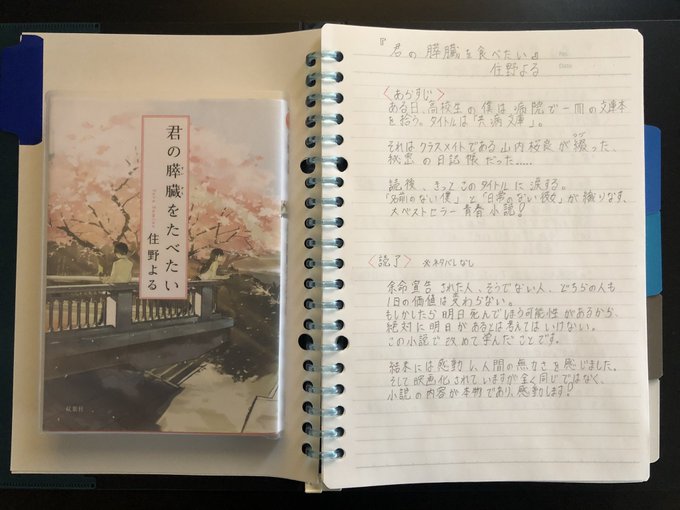 君の膵臓をたべたい
住野よる
双葉社
『君の膵臓を食べたい』
No.
住野よる
Date
<あらすじ>
ある日、高校生の僕は病院で一冊の文庫本
を拾う。タイトルは「共病文庫」。
それはクラスメイトである山内桜良が綴った、
秘密の日記帳だった……
読後、きっとこのタイトルに涙する。
「名前のない僕」と「日常のない彼女」が織りなす、
大ベストセラー青春小説!
<読了> ※ネタバレなし
余命宣告された人、そうでない人、どちらの人も
1日の価値は変わらない。
もしかしたら明日死んでしまう可能性があるから、
絶対に明日があるとは考えてはいけない。
この小説で改めて学んだことです。
結末には感動し、人間の無力さを感じました。
そして映画化されていますが全く同じではなく、
小説の内容が本物であり、感動します!